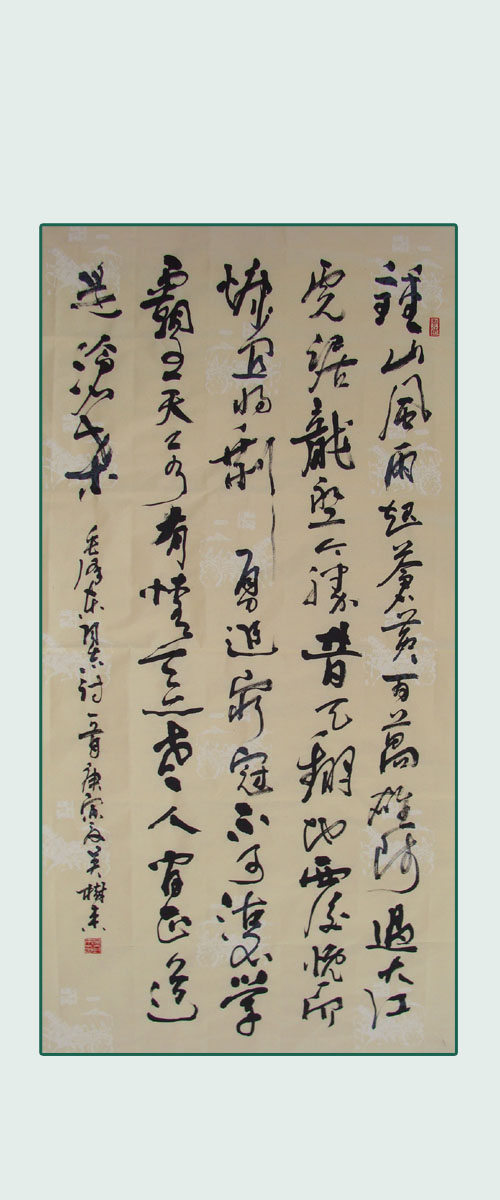 鍾山風雨起蒼黃百萬雄師過大江
虎踞龍盤今勝昔天翻地覆慨而
慷宜將剩勇追窮寇不可沽名學
霸王天若有情天亦老人間正道
是滄桑
毛澤東同志詩一首庚寅夏吳樹